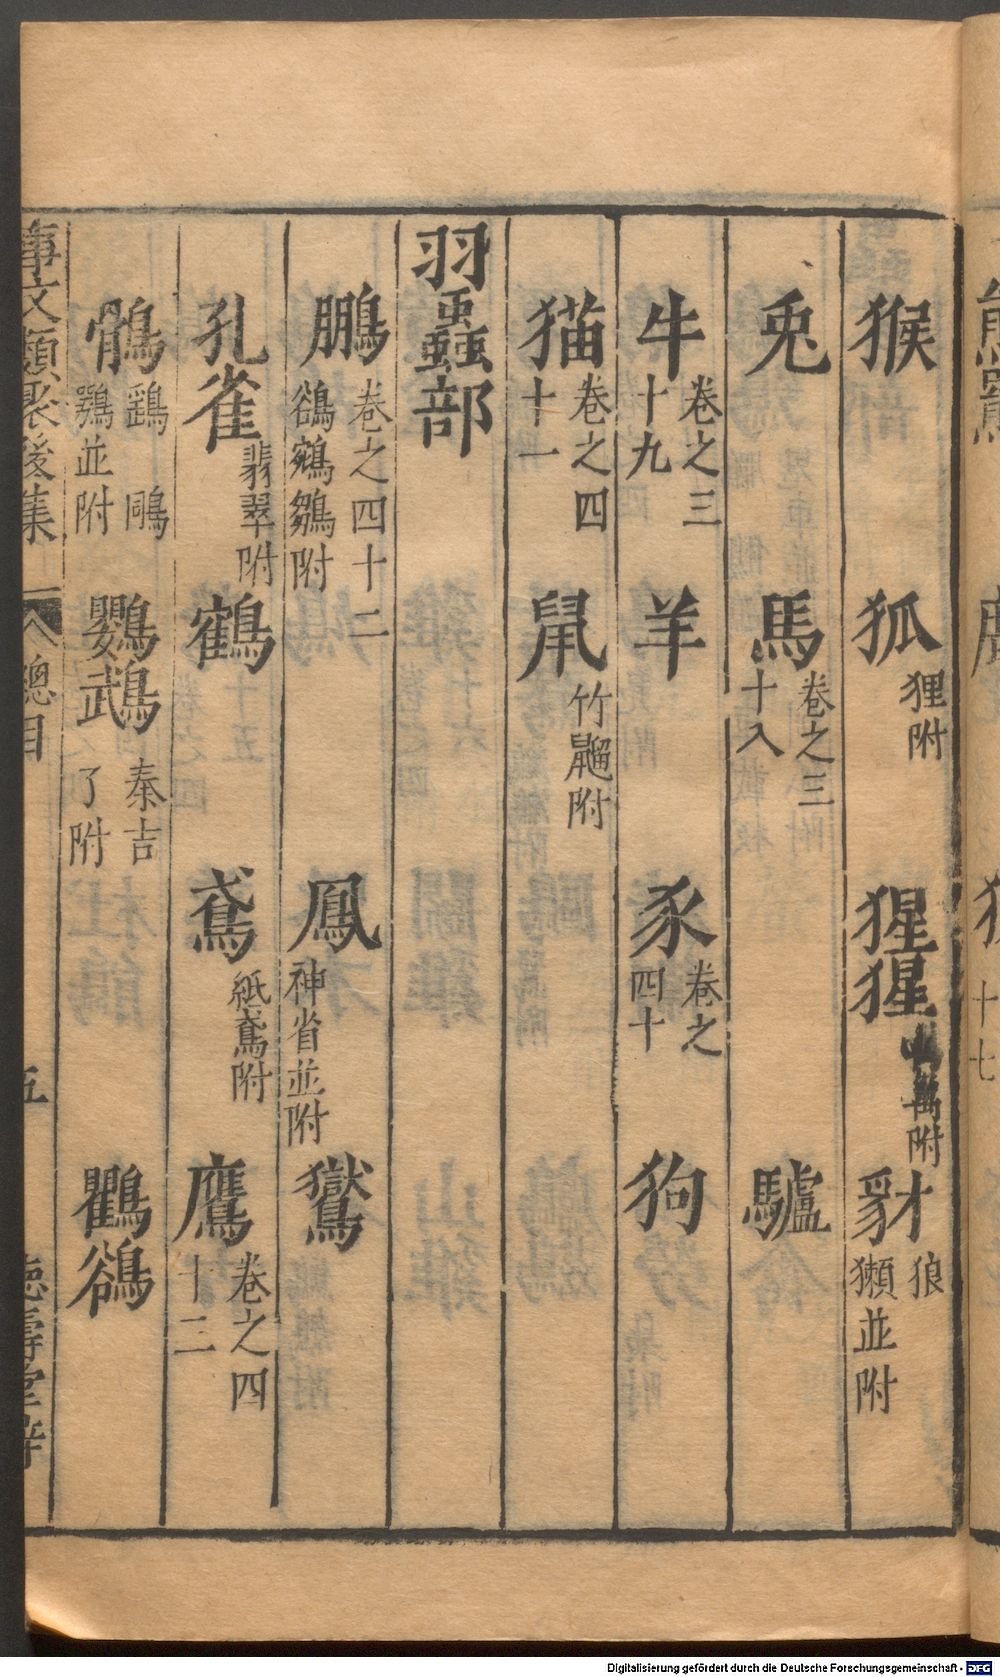 猴　狐狸附　猩猩萬附　豺狼獺並附
兎　馬卷之三十八　驢
牛卷之三十九　羊　豕卷之四十　狗
猫卷之四十一　鼠竹鼺附
羽蟲部
鵬卷之四十二鵒鵷鶵附　鳳神省並附　鸑
孔雀翡翠附　鶴　鳶紙鳶附　鷹卷之四十二
鶻鷂鵰鶚並附　鸚鵡秦吉了附　鸜鵒
事文類聚後集　總目　五　德壽堂梓
十七
Digitalisierung gefördert durch die Deutsche Forschungsgemeinschaft - DFG